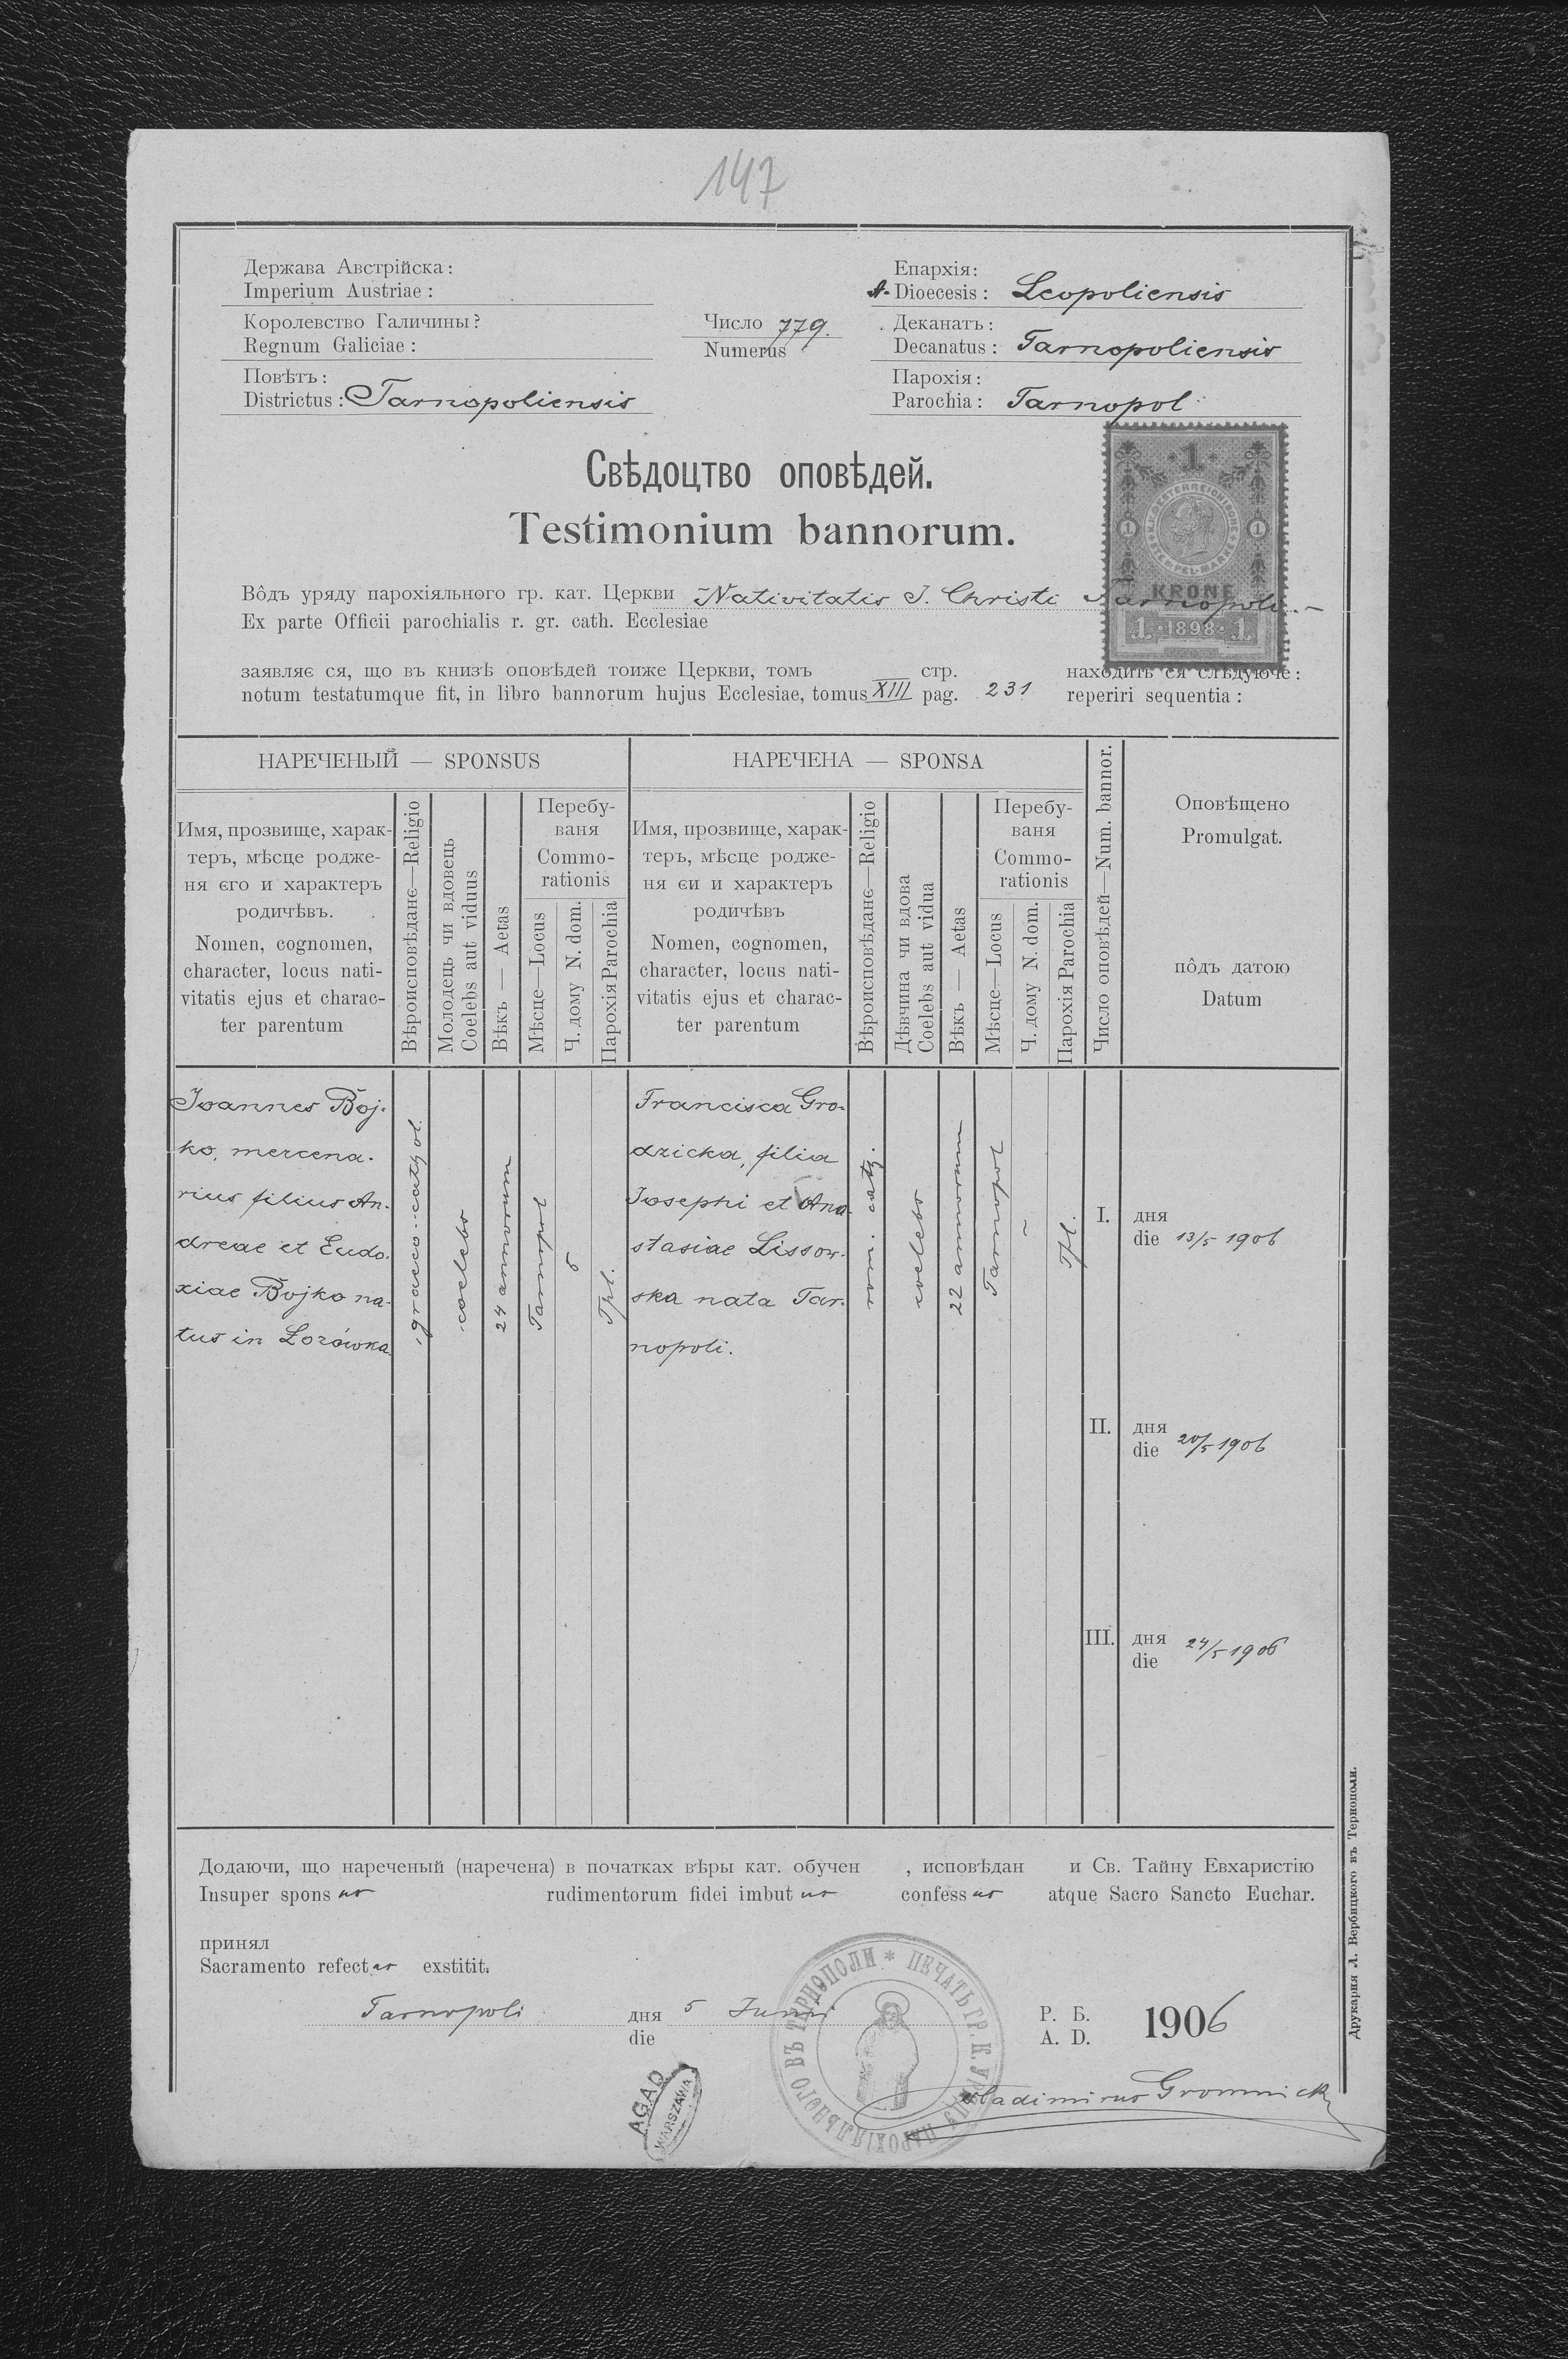 147
Держава Австрійска:
Imperium Austriae:
Королевство Галичины?
Regnum Galiciae:
Повѣтъ:
Districtus: Tarnopoliensis
Число 779.
Numerus
Епархія:
A- Dioecesis: Leopoliensis
Деканатъ:
Decanatus: Tarnopoliensis
Парохія:
Parochia: Tarnopol
Свѣдоцтво оповѣдей.
Testimonium bannorum.
1
KRONE
1 · 1898 · 1
Вôдъ уряду парохіяльного гр. кат. Церкви Nativitatis J. Christi Tarnopoli.
Ex parte Officii parochialis r. gr. cath. Ecclesiae
заявляє ся, що въ книзѣ оповѣдей тоиже Церкви, томъ стр. находить ся слѣдуюче:
notum testatumque fit, in libro bannorum hujus Ecclesiae, tomus XIII pag. 231 reperiri sequentia:
НАРЕЧЕНЫЙ — SPONSUS
Имя, прозвище, харак-
теръ, мѣсце родже-
ня єго и характеръ
родичѣвъ.
Nomen, cognomen,
character, locus nati-
vitatis ejus et charac-
ter parentum
Вѣроисповѣданє—Religio
Молодець чи вдовець
Coelebs aut viduus
Вѣкъ — Aetas
Перебу-
ваня
Commo-
rationis
Мѣсце—Locus
Ч. дому N. dom.
Парохія Parochia
НАРЕЧЕНА — SPONSA
Имя, прозвище, харак-
теръ, мѣсце родже-
ня єи и характеръ
родичѣвъ
Nomen, cognomen,
character, locus nati-
vitatis ejus et charac-
ter parentum
Вѣроисповѣданє—Religio
Дѣвчина чи вдова
Coelebs aut vidua
Вѣкъ — Aetas
Перебу-
ваня
Commo-
rationis
Мѣсце—Locus
Ч. дому N. dom.
Парохія Parochia
Число оповѣдей—Num. bannor.
Оповѣщено
Promulgat.
пôдъ датою
Datum
Joannes Boj-
ko, mercena-
rius filius An-
dreae et Eudo-
xiae Bojko na-
tus in Łozówka
graeco-cathol.
coelebs
24 annorum
Tarnopol
5
Tpl.
Francisca Gro-
dzicka, filia
Josephi et Ana-
stasiae Lissow-
ska nata Tar-
nopoli.
rom. cath.
coelebs
22 annorum
Tarnopol
~
Tpl.
I. дня
die 13/5 1906
II. дня
die 20/5 1906
III. дня
die 24/5 1906
Додаючи, що нареченый (наречена) в початках вѣры кат. обучен , исповѣдан и Св. Тайну Евхаристію
Insuper spons us rudimentorum fidei imbut us confess us atque Sacro Sancto Euchar.
принял
Sacramento refect us exstitit.
Tarnopoli дня 5 Junii Р. Б.
die A. D. 1906
ПЕЧАТЬ ГР. К. УРЯДУ ПАРОХІЯЛЬНОГО ВЪ ТЕРНОПОЛИ *
Vladimirus Gromnicki
AGAD
WARSZAWA
Друкарня Л. Вербицкого въ Тернополи.